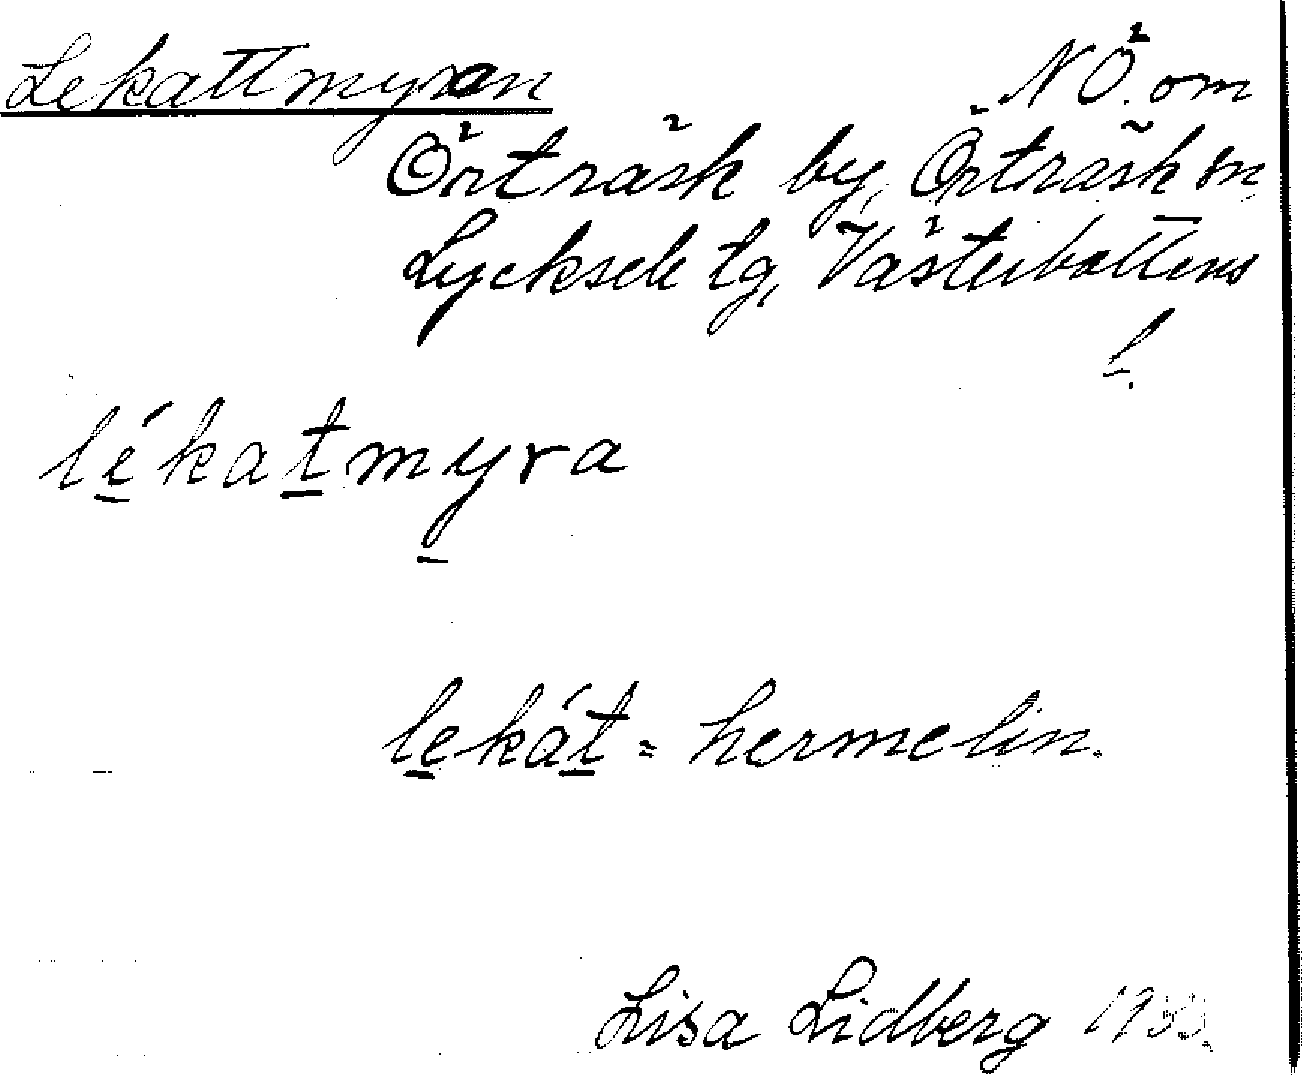 Lekattmyran NÖ. om
Örträsk by, Örträsk sn
Lycksele tg, Västerbottens
l.
lékatmyra
lekát = hermelin.
Lisa Lidberg